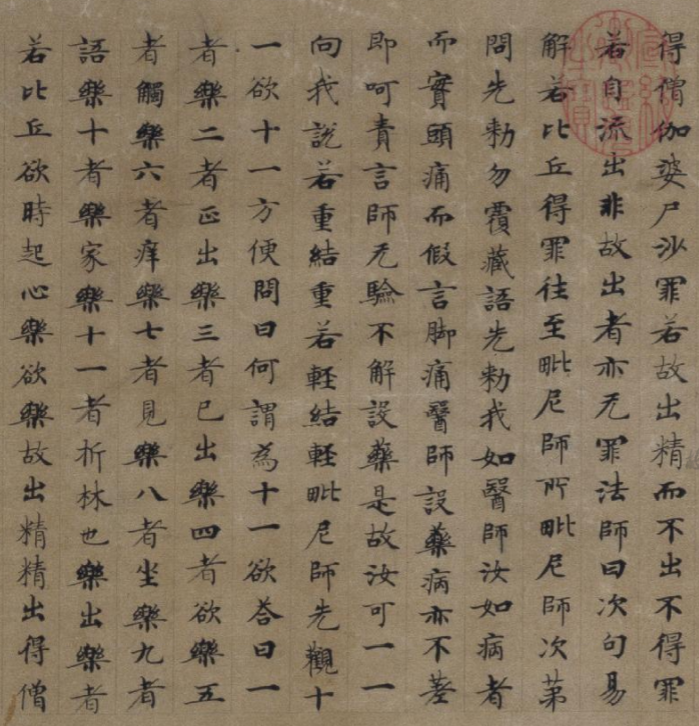 得僧伽婆尸沙罪若故出精而不出不得罪
若自流出非故出者亦无罪法師曰次句易
解若比丘得罪往至毗尼師所毗尼師次苐
問先勑勿覆藏語先勑我如醫師汝如病者
而實頭痛而假言脚痛醫師設藥病亦不差
即呵責言師无驗不解設藥是故汝可一一
向我說若重結重若輕結輕毗尼師先觀十
一欲十一方便問曰何謂為十一欲荅曰一
者樂二者正出樂三者已出樂四者欲樂五
者觸樂六者痒樂七者見樂八者坐樂九者
語樂十者樂家樂十一者折林也樂出樂者
若比丘欲時起心樂欲樂故出精精出得僧